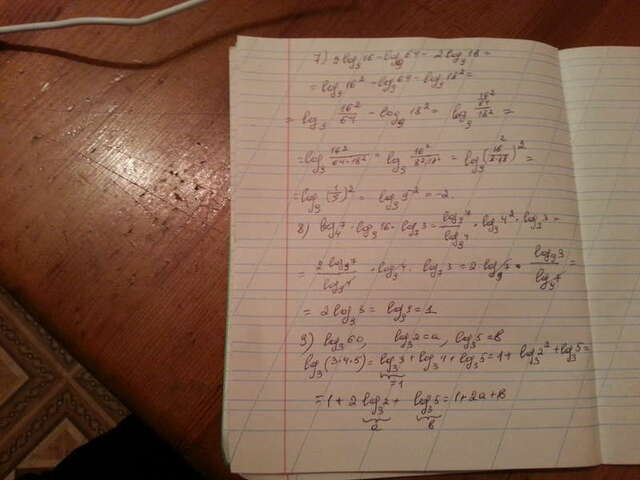 7) 3log₃16 - log₉64 - 2log₃18 =
= log₃16² - log₃64 - log₃18² =
= log₃ 16²/64 - log₉ 18² = log₃ (16²/64)/18² =
= log₃ 16²/(64·18²) = log₃ 16²/(8²·18²) = log₃ (16/(8·18))² =
= log₃ (1/9)² = log₃ 9⁻² = -2.
8) log₄7 · log₃16 · log₇3 = log₃7/log₃4 · log₃4² · log₇3 =
= 2log₃7/log₃4 · log₃4 · log₇3 = 2·log₉7 · log₉3/log₉7 =
= 2log₃3 = log₃3 = 1
9) log₃60, log₃2=a, log₃5=в
log₃(3·4·5) = log₃3 + log₃4 + log₃5 = 1 + log₃2² + log₃5 =
=1
= 1 + 2 log₃2 + log₃5 = 1+2a+в
a в